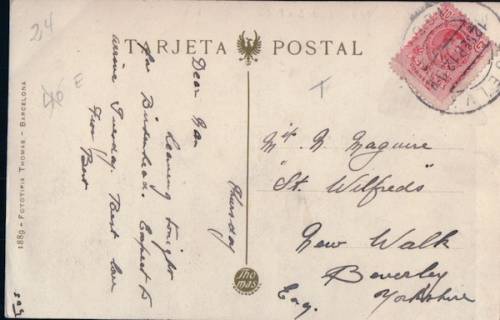 24
TARJETA POSTAL
1889 - FOTOTIPIA THOMAS. - BARCELONA
Thursday
Dear Nan
Leaving tonight
for Birkenhead. Expect to
arrive Tuesday Best love
from Bert
T
N. Maguire
"St. Wilfreds"
New Walk
Beverley
Yorkshire
Eng.
Thomas